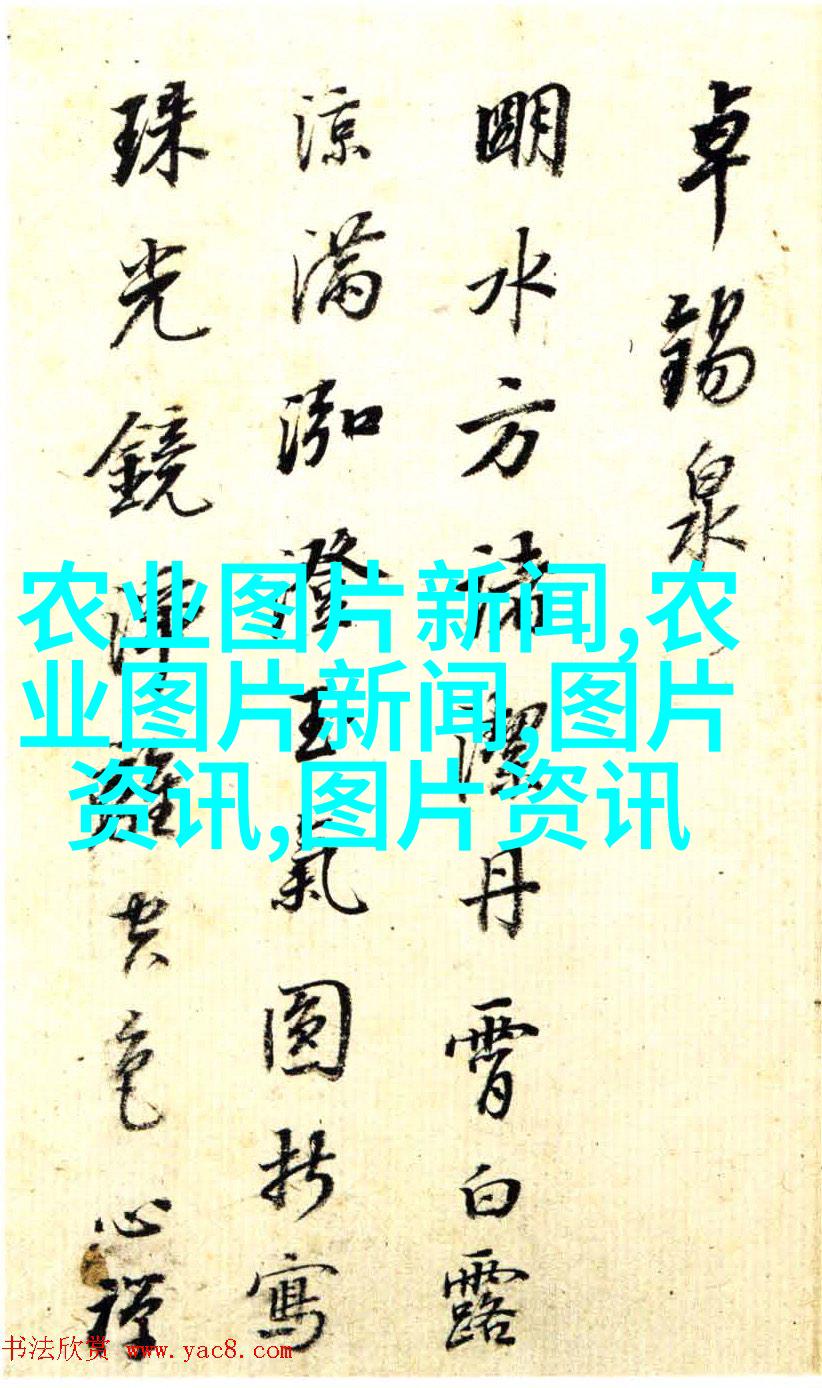 卓錫泉
明水方諸潔丹霄白露
涼滿泓澄玉氣圓折寫
珠光鏡潭難色心禪
农业图片新闻,农
业图片新闻,图片
资讯,图片资讯
书法欣赏 www.yac8.com